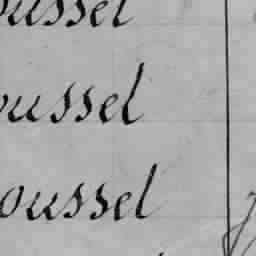 oussel
oussel
oussel